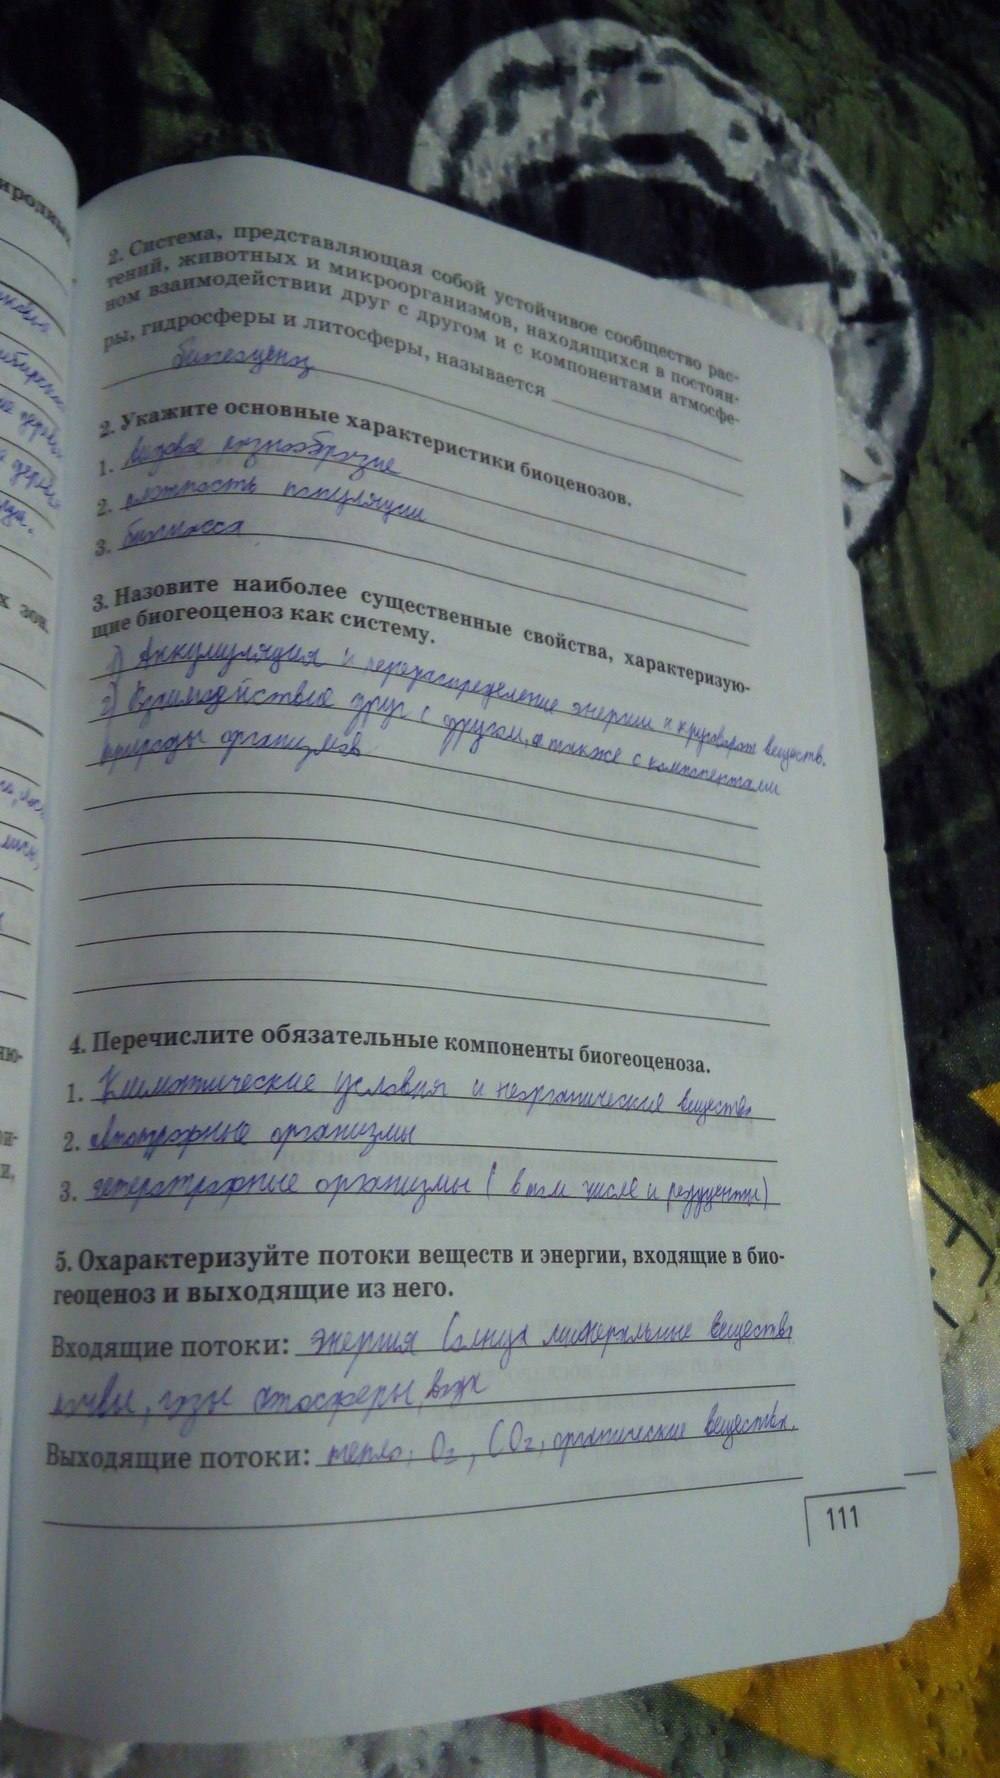 2. Система, представляющая собой устойчивое сообщество рас-
тений, животных и микроорганизмов, находящихся в постоян-
ном взаимодействии друг с другом и с компонентами атмосфе-
ры, гидросферы и литосферы, называется
2. Укажите основные характеристики биоценозов.
1. видовое разнообразие
2. плотность популяции
3. биомасса
3. Назовите наиболее существенные свойства, характеризую-
щие биогеоценоз как систему.
1) Аккумуляция и перераспределение энергии и круговорот веществ.
2) Взаимодействие друг с другом, а также с компонентами
природы организмов
4. Перечислите обязательные компоненты биогеоценоза.
1. Климатические условия и неорганические вещества
2. автотрофные организмы
3. гетеротрофные организмы (в том числе и редуценты)
5. Охарактеризуйте потоки веществ и энергии, входящие в био-
геоценоз и выходящие из него.
Входящие потоки: энергия Солнца минеральные вещества
почвы, газы атмосферы, вода
Выходящие потоки: тепло, O2, CO2, органические вещества.
111
зон.